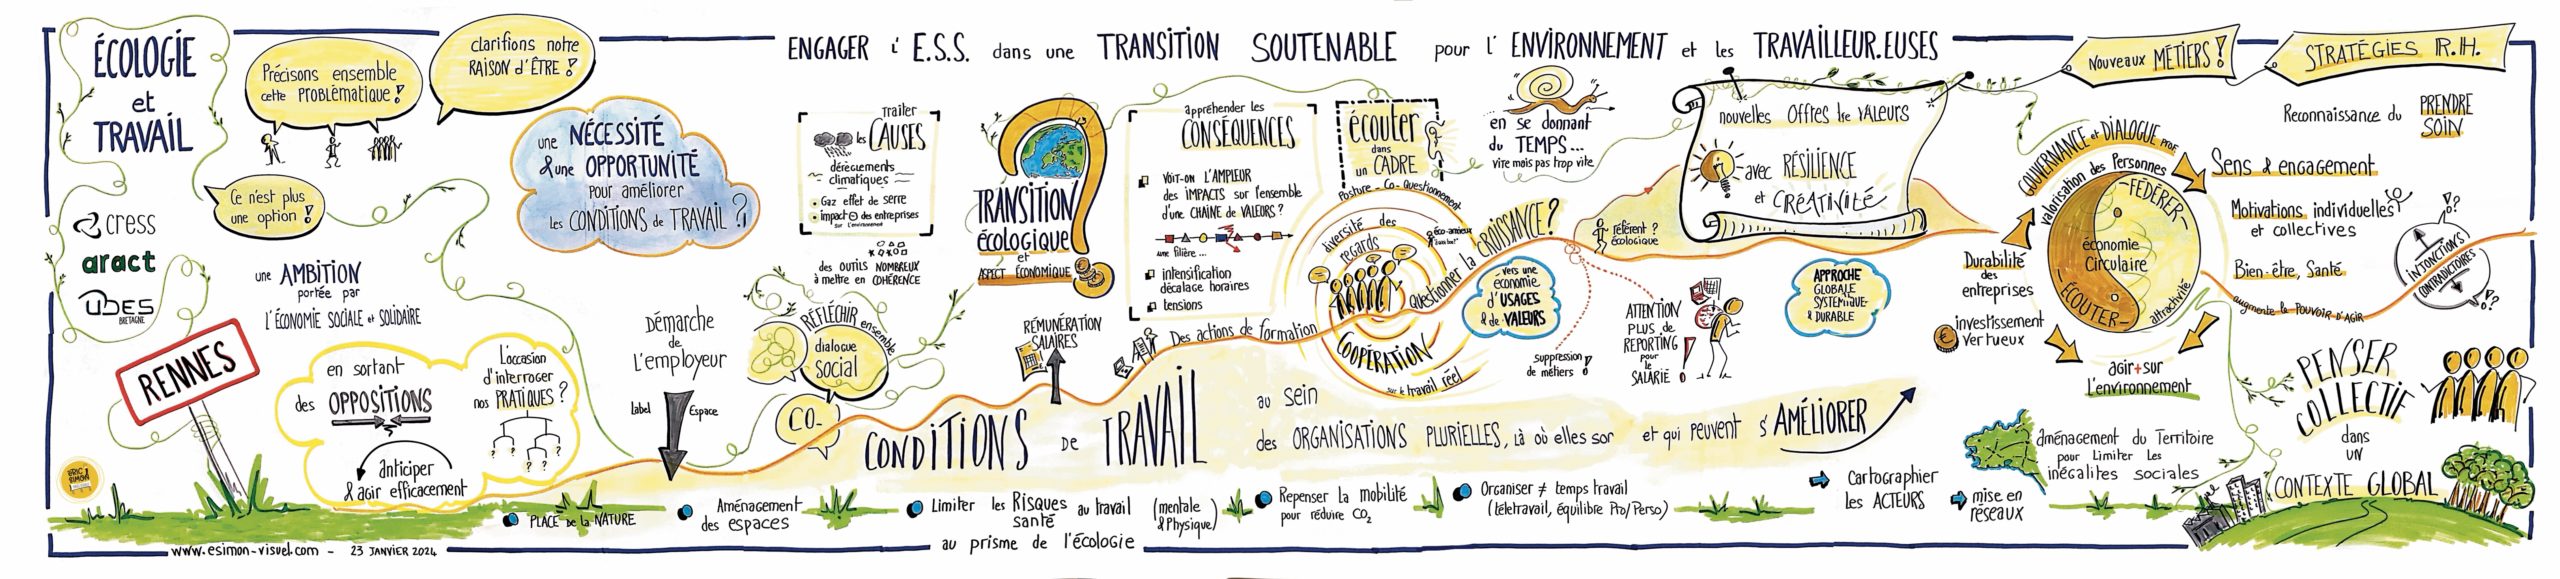 ÉCOLOGIE
et
TRAVAIL
cress
aract
UDES
BRETAGNE
RENNES
ERIC
SIMON
www.esimon-visuel.com - 23 JANVIER 2024
Précisons ensemble
cette PROBLÉMATIQUE !
clarifions notre
RAISON d'ÊTRE !
Ce n'est plus
une option !
une AMBITION
portée par
L'ÉCONOMIE SOCIALE et SOLIDAIRE
en sortant
des OPPOSITIONS
anticiper
& agir efficacement
L'occasion
d'interroger
nos PRATIQUES ?
? ? ? ?
une NÉCESSITÉ
& une OPPORTUNITÉ
pour améliorer
les CONDITIONS de TRAVAIL ?
Démarche
de
L'employeur
Label
Espace
ENGAGER L'E.S.S. dans une TRANSITION SOUTENABLE pour L'ENVIRONNEMENT et les TRAVAILLEUR.EUSES
Traiter
les CAUSES
dérèglements
climatiques
Gaz effet de serre
impact ⊖ des entreprises
sur l'environnement
des OUTILS NOMBREUX
à mettre en COHÉRENCE
RÉFLÉCHIR ensemble
dialogue
social
CO-
TRANSITION
écologique
et
ASPECT ÉCONOMIQUE
?
RÉMUNÉRATION
SALAIRES
appréhender les
CONSÉQUENCES
VOIT-ON L'AMPLEUR
des IMPACTS sur l'ensemble
d'une CHAINE de VALEURS ?
une filière ...
intensification
décalage horaires
tensions
Des actions de formation
écouter
dans
un CADRE
Posture - Co-Questionnement
diversité des
regards
COOPÉRATION
sur le travail réel
Questionner la CROISSANCE ?
en se donnant
du TEMPS...
vite mais pas trop vite
vers une
économie
d'USAGES
& de VALEURS
référent ?
écologique
suppression
de métiers !
ATTENTION
PLUS de
REPORTING
pour
le
SALARIÉ !
nouvelles Offres de VALEURS
avec RÉSILIENCE
et CRÉATIVITÉ
APPROCHE
GLOBALE
SYSTÉMIQUE
& DURABLE
CONDITIONS DE TRAVAIL
au sein
des ORGANISATIONS PLURIELLES, Là où elles son et qui peuvent s'AMÉLIORER
PLACE de la NATURE
Aménagement
des espaces
Limiter les Risques
santé
au travail
(mentale
& Physique)
au prisme de l'écologie
Repenser la mobilité
pour réduire CO2
Organiser ≠ temps travail
(télétravail, équilibre Pro/Perso)
Cartographier
les ACTEURS
mise en
réseaux
Nouveaux MÉTIERS !
STRATÉGIES R.H.
Reconnaissance du PRENDRE
SOIN
GOUVERNANCE et DIALOGUE PROF
valorisation des Personnes
FÉDÉRER
économie
Circulaire
ÉCOUTER
attractivité
Durabilité
des
entreprises
investissement
vertueux
agir + sur
L'environnement
Sens & engagement
Motivations individuelles
et collectives
Bien-être, Santé
augmente le POUVOIR D'AGIR
!?
INJONCTIONS
CONTRADICTOIRES
!?
Aménagement du Territoire
pour Limiter les
inégalites sociales
PENSER
COLLECTIF
dans
UN
CONTEXTE GLOBAL